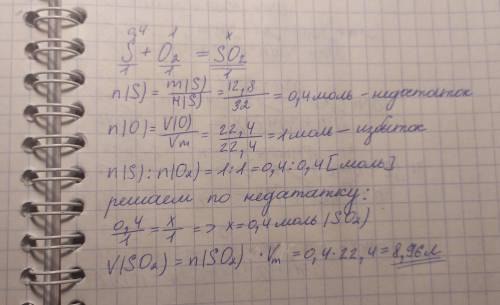 0,4 1 x
S + O₂ = SO₂
1 1 1
n(S) = m(S)/M(S) = 12,8/32 = 0,4 моль – недостаток
n(O) = V(O)/Vm = 22,4/22,4 = 1 моль – избыток
n(S) : n(O₂) = 1:1 = 0,4 : 0,4 [моль]
решаем по недататку:
0,4/1 = x/1 => x = 0,4 моль (SO₂)
V(SO₂) = n(SO₂) · Vm = 0,4 · 22,4 = 8,96л